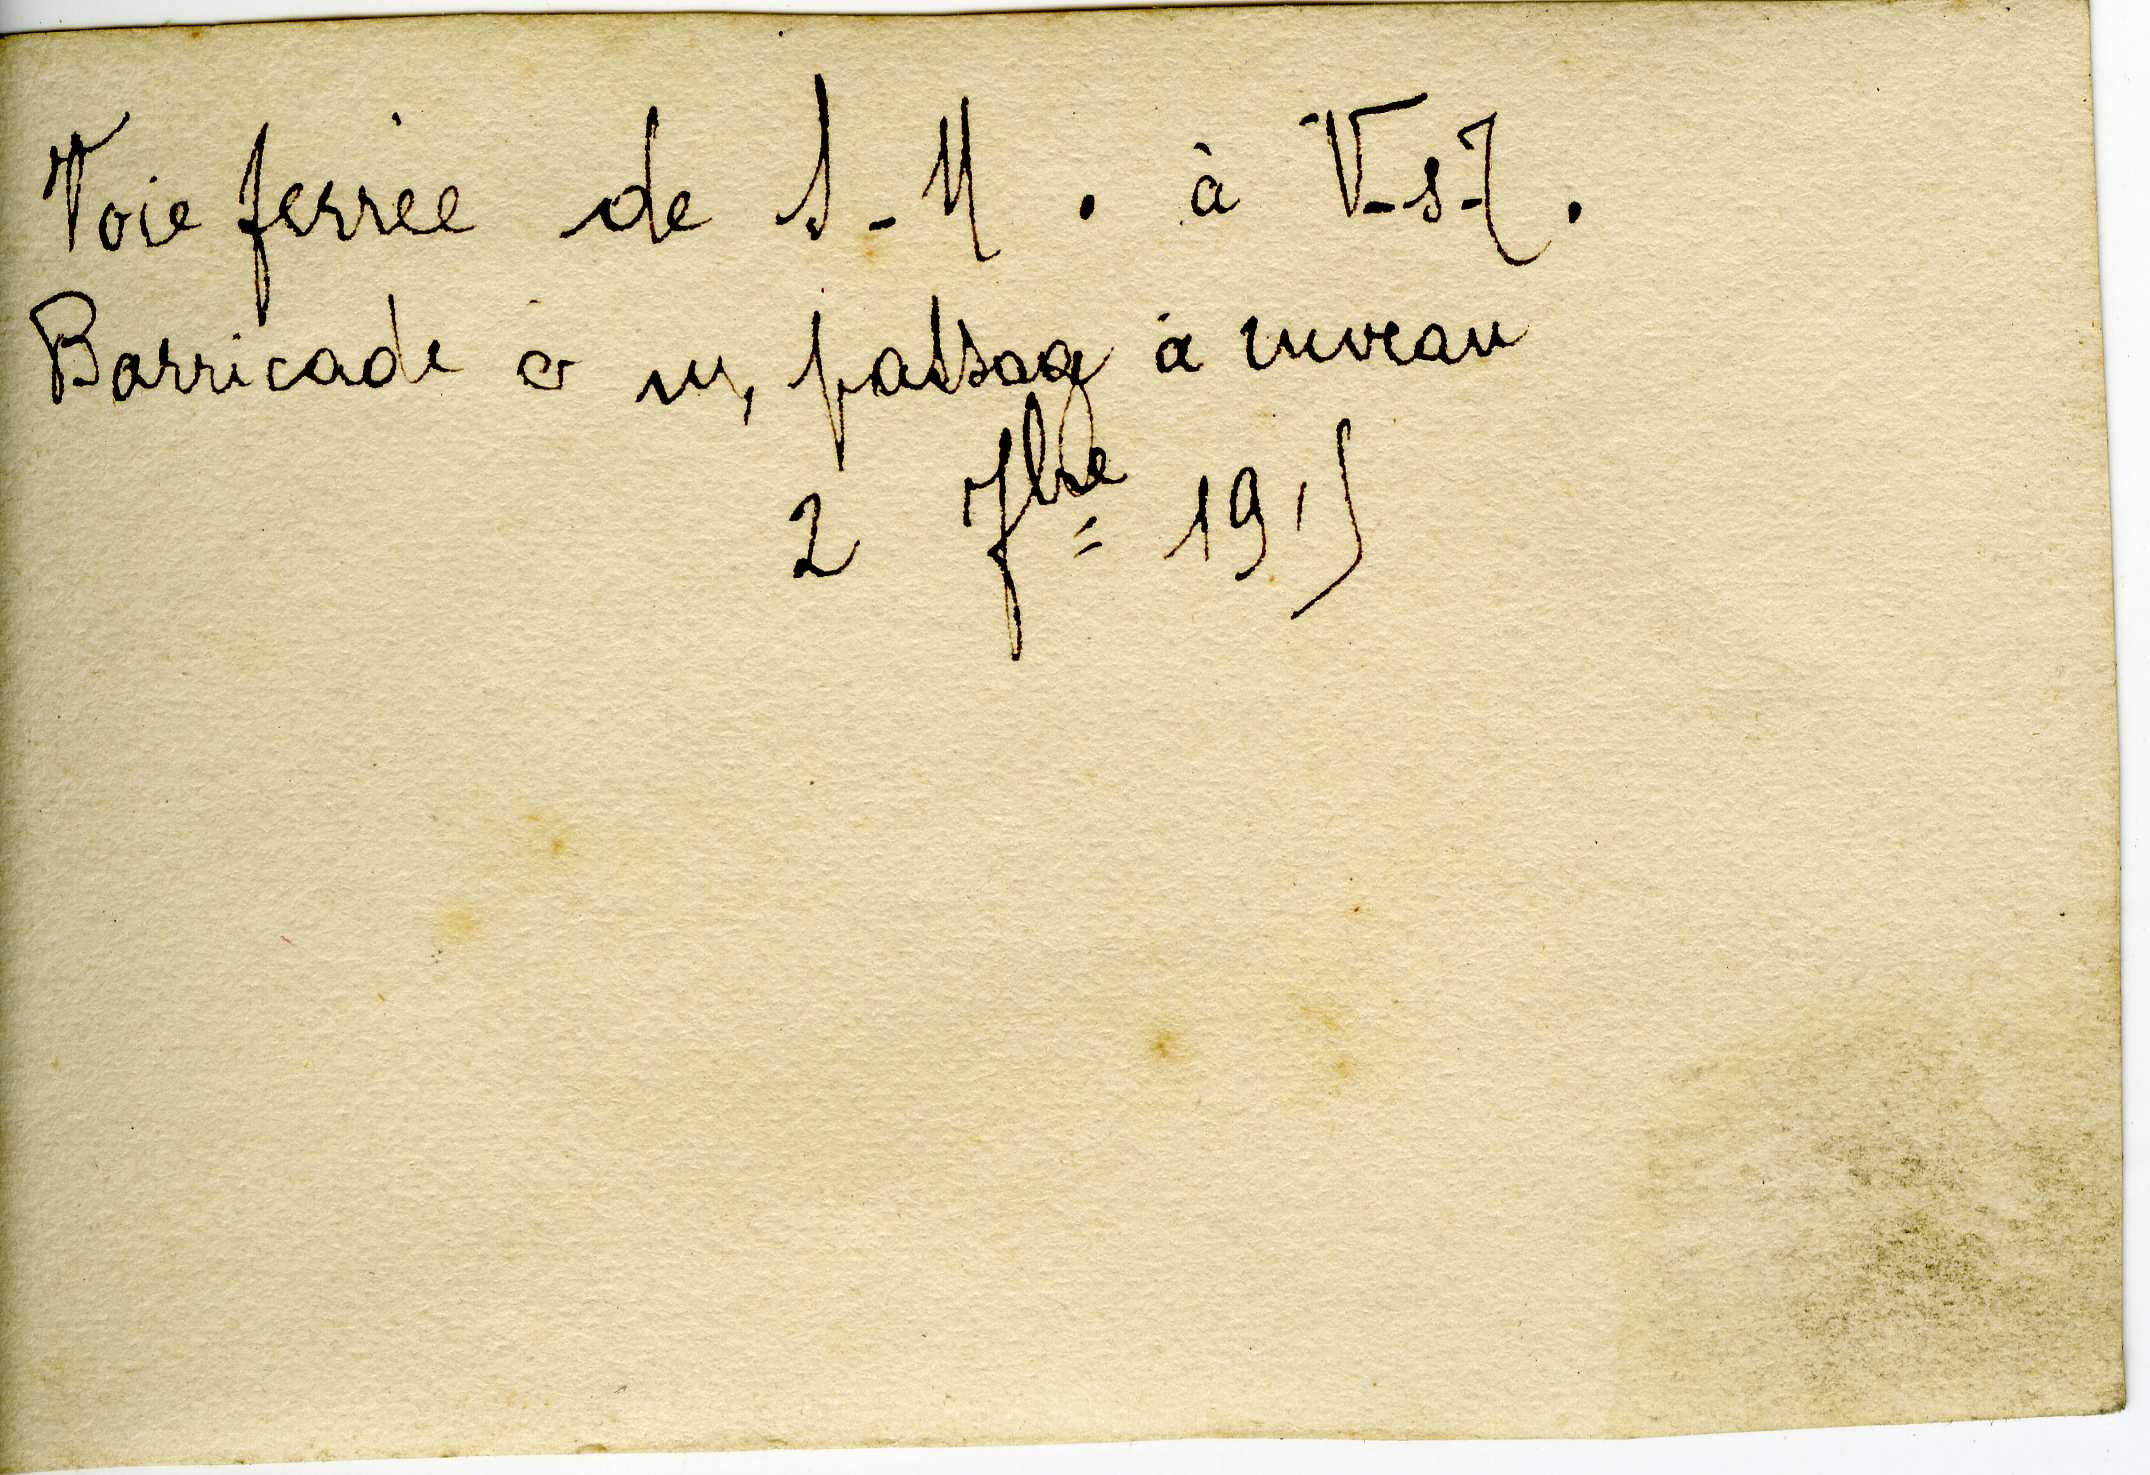 Voie ferrée de S-M. à V-s-T.
Barricade à un passage à niveau
2 7bre 1915